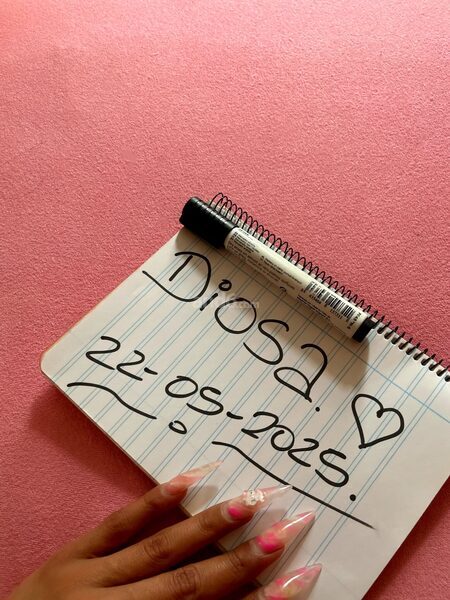 Diosa. ♡
22-05-2025.